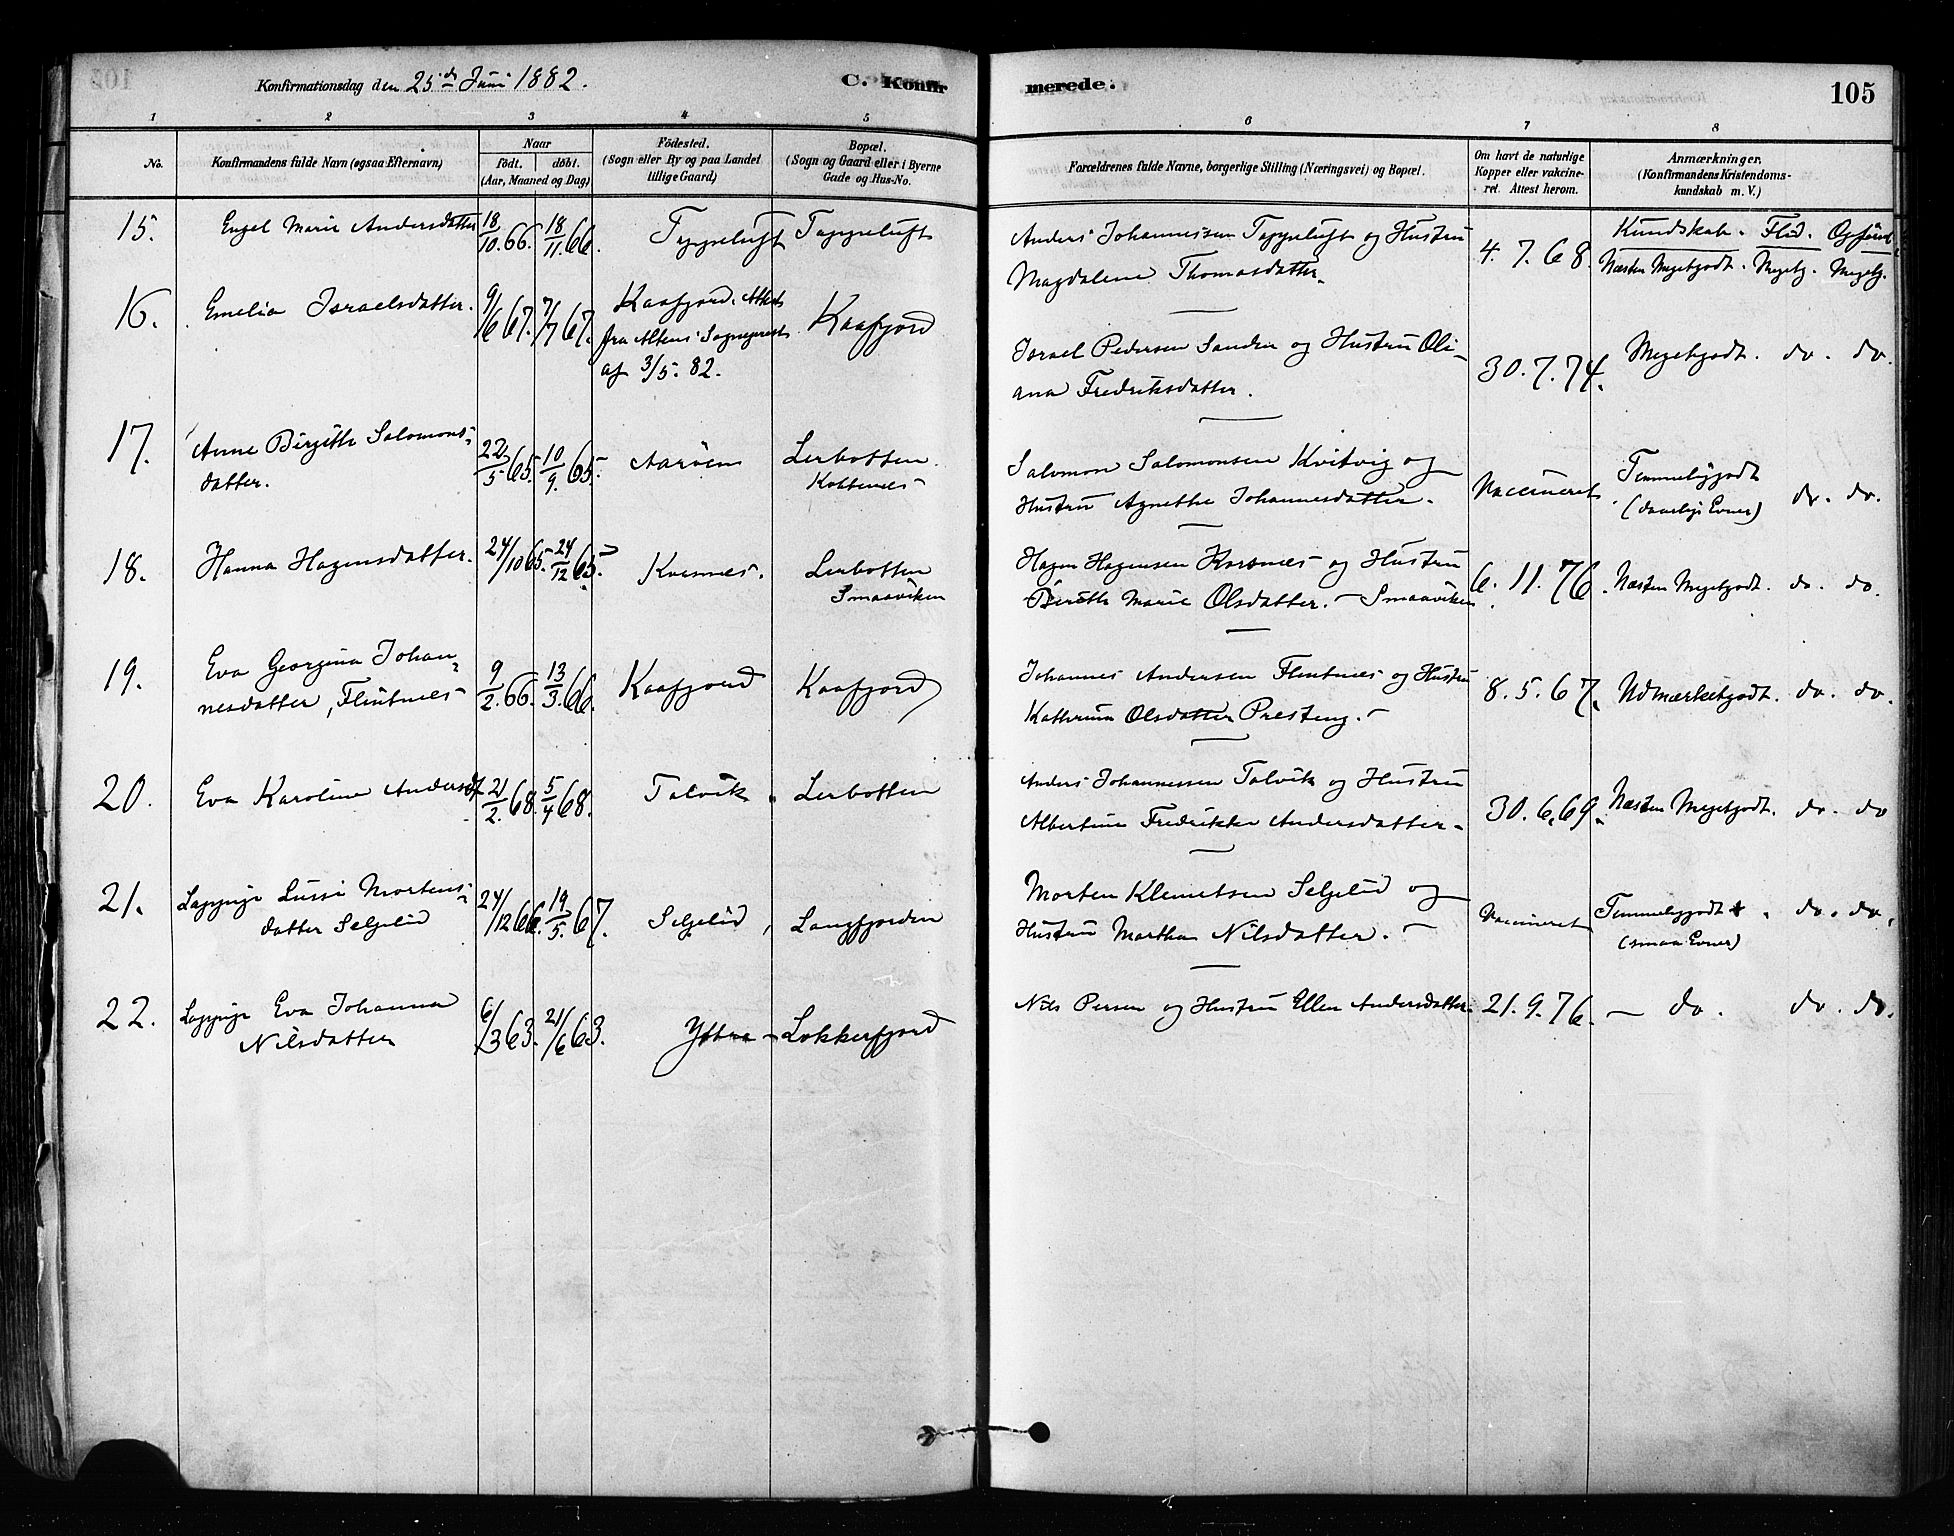 Konfirmationsdag den 25de Juni 1882.
C. Konfirmerede.
105
1 2 3 4 5 6 7 8
No.
Konfirmandens fulde Navn (øgsaa Efternavn)
Naar
født. døbt.
(Aar, Maaned og Dag)
Fødested.
(Sogn eller By og paa Landet
tillige Gaard)
Bopæl.
(Sogn og Gaard eller i Byerne
Gade og Hus-No.
Forældrenes fulde Navne, borgerlige Stilling (Næringsvei) og Bopæl.
Om havt de naturlige
Kopper eller vakcine-
ret. Attest herom.
Anmærkninger.
(Konfirmandens Kristendoms-
kundskab m. V.)
Kundskab. Flid. Opførsel
15. Engel Marie Andersdatter 18/10.66. 18/11.66. Toppeluft Toppeluft Anders Johannessen Toppeluft og Hustru
Magdalene Thomasdatter. 4. 7. 68. Næsten Megetgodt. Megetg. Megetg.
16. Emelia Israelsdatter. 9/6 67. 7/7 67. Kaafjord. Attest
fra Altens Sognepræst
af 3/5. 82. Kaafjord Israel Pedersen Sandra og Hustru Oli-
ana Fredriksdatter. 30. 7. 74. Megetgodt. do. do.
17. Anne Birgitte Salomons-
datter. 22/5 65. 10/9. 65. Aarøen Lerbotten.
Salomon Salomonsen Kvitvig og
Hustru Agnethe Johannesdatter. Vaccineret. Temmeliggodt
(daarlige Evner) do. do.
18. Hanna Hagensdatter. 24/10 65. 24/12 65. Korsnes. Lerbotten
Smaaviken Hagen Hagensen Korsnes og Hustru
Berith Marie Olsdatter. - Smaaviken 6. 11. 76. Næsten Megetgodt. do. do.
19. Eva Georgina Johan-
nesdatter, Flintnes 9/2. 66. 13/3. 66. Kaafjord Kaafjord Johannes Andersen Flintnes og Hustru
Kathrina Olsdatter Presteng. - 8. 5. 67. Udmærketgodt. do. do.
20. Eva Karoline Andersdt 21/2. 68. 5/4 68. Talvik. Lerbotten Anders Johannessen Talvik og Hustru
Albertine Fredrikke Andersdatter - 30. 6. 69. Næsten Megetgodt. do. do
21. Lappige Lussi Mortens-
datter Seljelid 24/12 66. 19/5. 67. Seljelid, Langfjorden Morten Klemetsen Seljelid og
Hustru Martha Nilsdatter. - Vaccineret Temmeliggodt. do. do.
(smaa Evner)
22. Lappige Eva Johanna
Nilsdatter 6/3 63. 21/6 63. Yttre - Lokkerfjord Nils Persen og Hustru Ellen Andersdatter. 21. 9. 76. - do. do. do.